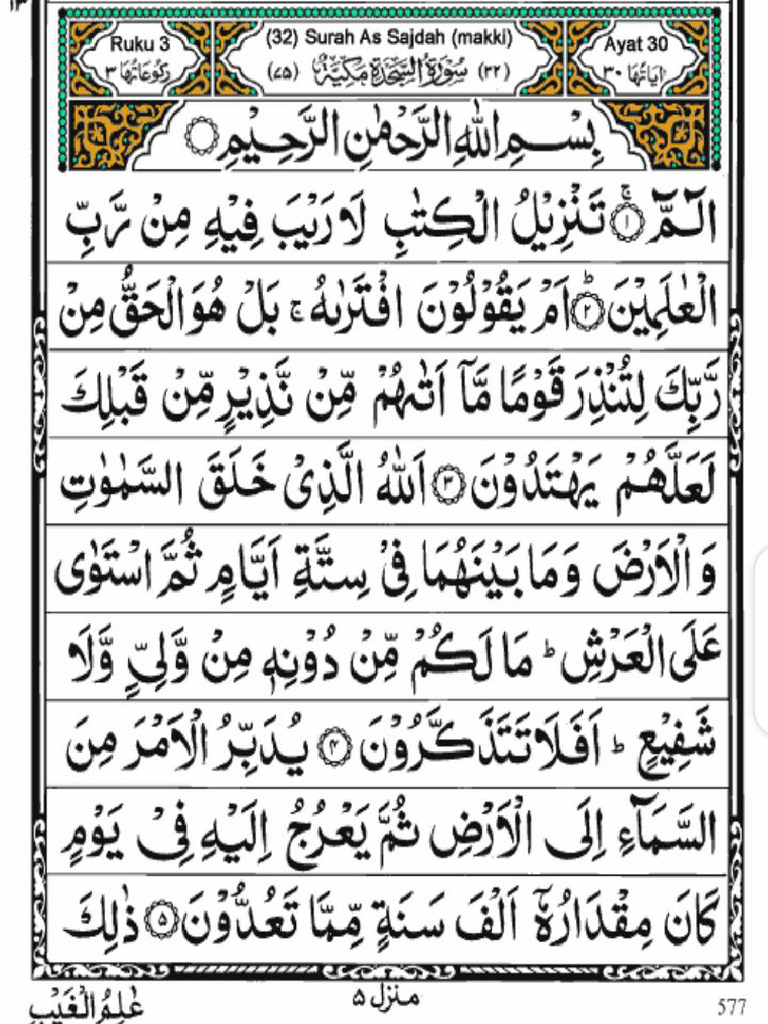 ۱۳
Ruku 3 (32) Surah As Sajdah (makki) Ayat 30
رُكُوْعَاتُهَا ۳ (۳۲) سُوْرَةُ السَّجْدَةِ مَكِّيَّةٌ (۷۵) اٰيَاتُهَا ۳۰
بِسْمِ اللّٰهِ الرَّحْمٰنِ الرَّحِيْمِ
الٓـمّٓ ۚ‏﴿۱﴾ تَنْزِيْلُ الْكِتٰبِ لَا رَيْبَ فِيْهِ مِنْ رَّبِّ
الْعٰلَمِيْنَ ؕ‏﴿۲﴾ اَمْ يَقُوْلُوْنَ افْتَرٰىهُ ۚ بَلْ هُوَ الْحَقُّ مِنْ
رَّبِّكَ لِتُنْذِرَ قَوْمًا مَّاۤ اَتٰىهُمْ مِّنْ نَّذِيْرٍ مِّنْ قَبْلِكَ
لَعَلَّهُمْ يَهْتَدُوْنَ ﴿۳﴾ اَللّٰهُ الَّذِىْ خَلَقَ السَّمٰوٰتِ
وَالْاَرْضَ وَمَا بَيْنَهُمَا فِىْ سِتَّةِ اَيَّامٍ ثُمَّ اسْتَوٰى
عَلَى الْعَرْشِ ؕ مَا لَكُمْ مِّنْ دُوْنِهٖ مِنْ وَّلِىٍّ وَّلَا
شَفِيْعٍ ؕ اَفَلَا تَتَذَكَّرُوْنَ ﴿۴﴾ يُدَبِّرُ الْاَمْرَ مِنَ
السَّمَآءِ اِلَى الْاَرْضِ ثُمَّ يَعْرُجُ اِلَيْهِ فِىْ يَوْمٍ
كَانَ مِقْدَارُهٗۤ اَلْفَ سَنَةٍ مِّمَّا تَعُدُّوْنَ ﴿۵﴾ ذٰلِكَ
عٰلِمُ الْغَيْبِ منزل ۵ 577